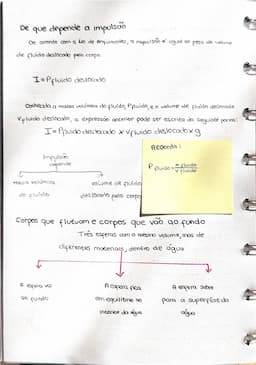 De que depende a impulsão
De acordo com a Lei de Arquimedes, a impulsão é igual ao peso do volume
de fluido deslocado pelo corpo
I = Pfluido deslocado
Conhecida a massa volúmica do fluido, ρfluido, e o volume de fluido deslocado
Vfluido deslocado, a expressão anterior pode ser escrita da seguinte forma:
I = ρfluido deslocado x Vfluido deslocado x g
Recorda:
ρ fluido = m fluido / V fluido
Impulsão
depende
massa volúmica
do fluido
volume de fluido
deslocado pelo corpo
Corpos que flutuam e corpos que vão ao fundo
Três esferas com o mesmo volume, mas de
diferentes materiais, dentro de água
A esfera vai
ao fundo
A esfera fica
em equilíbrio no
interior da água
A esfera sobe
para a superfície da
água